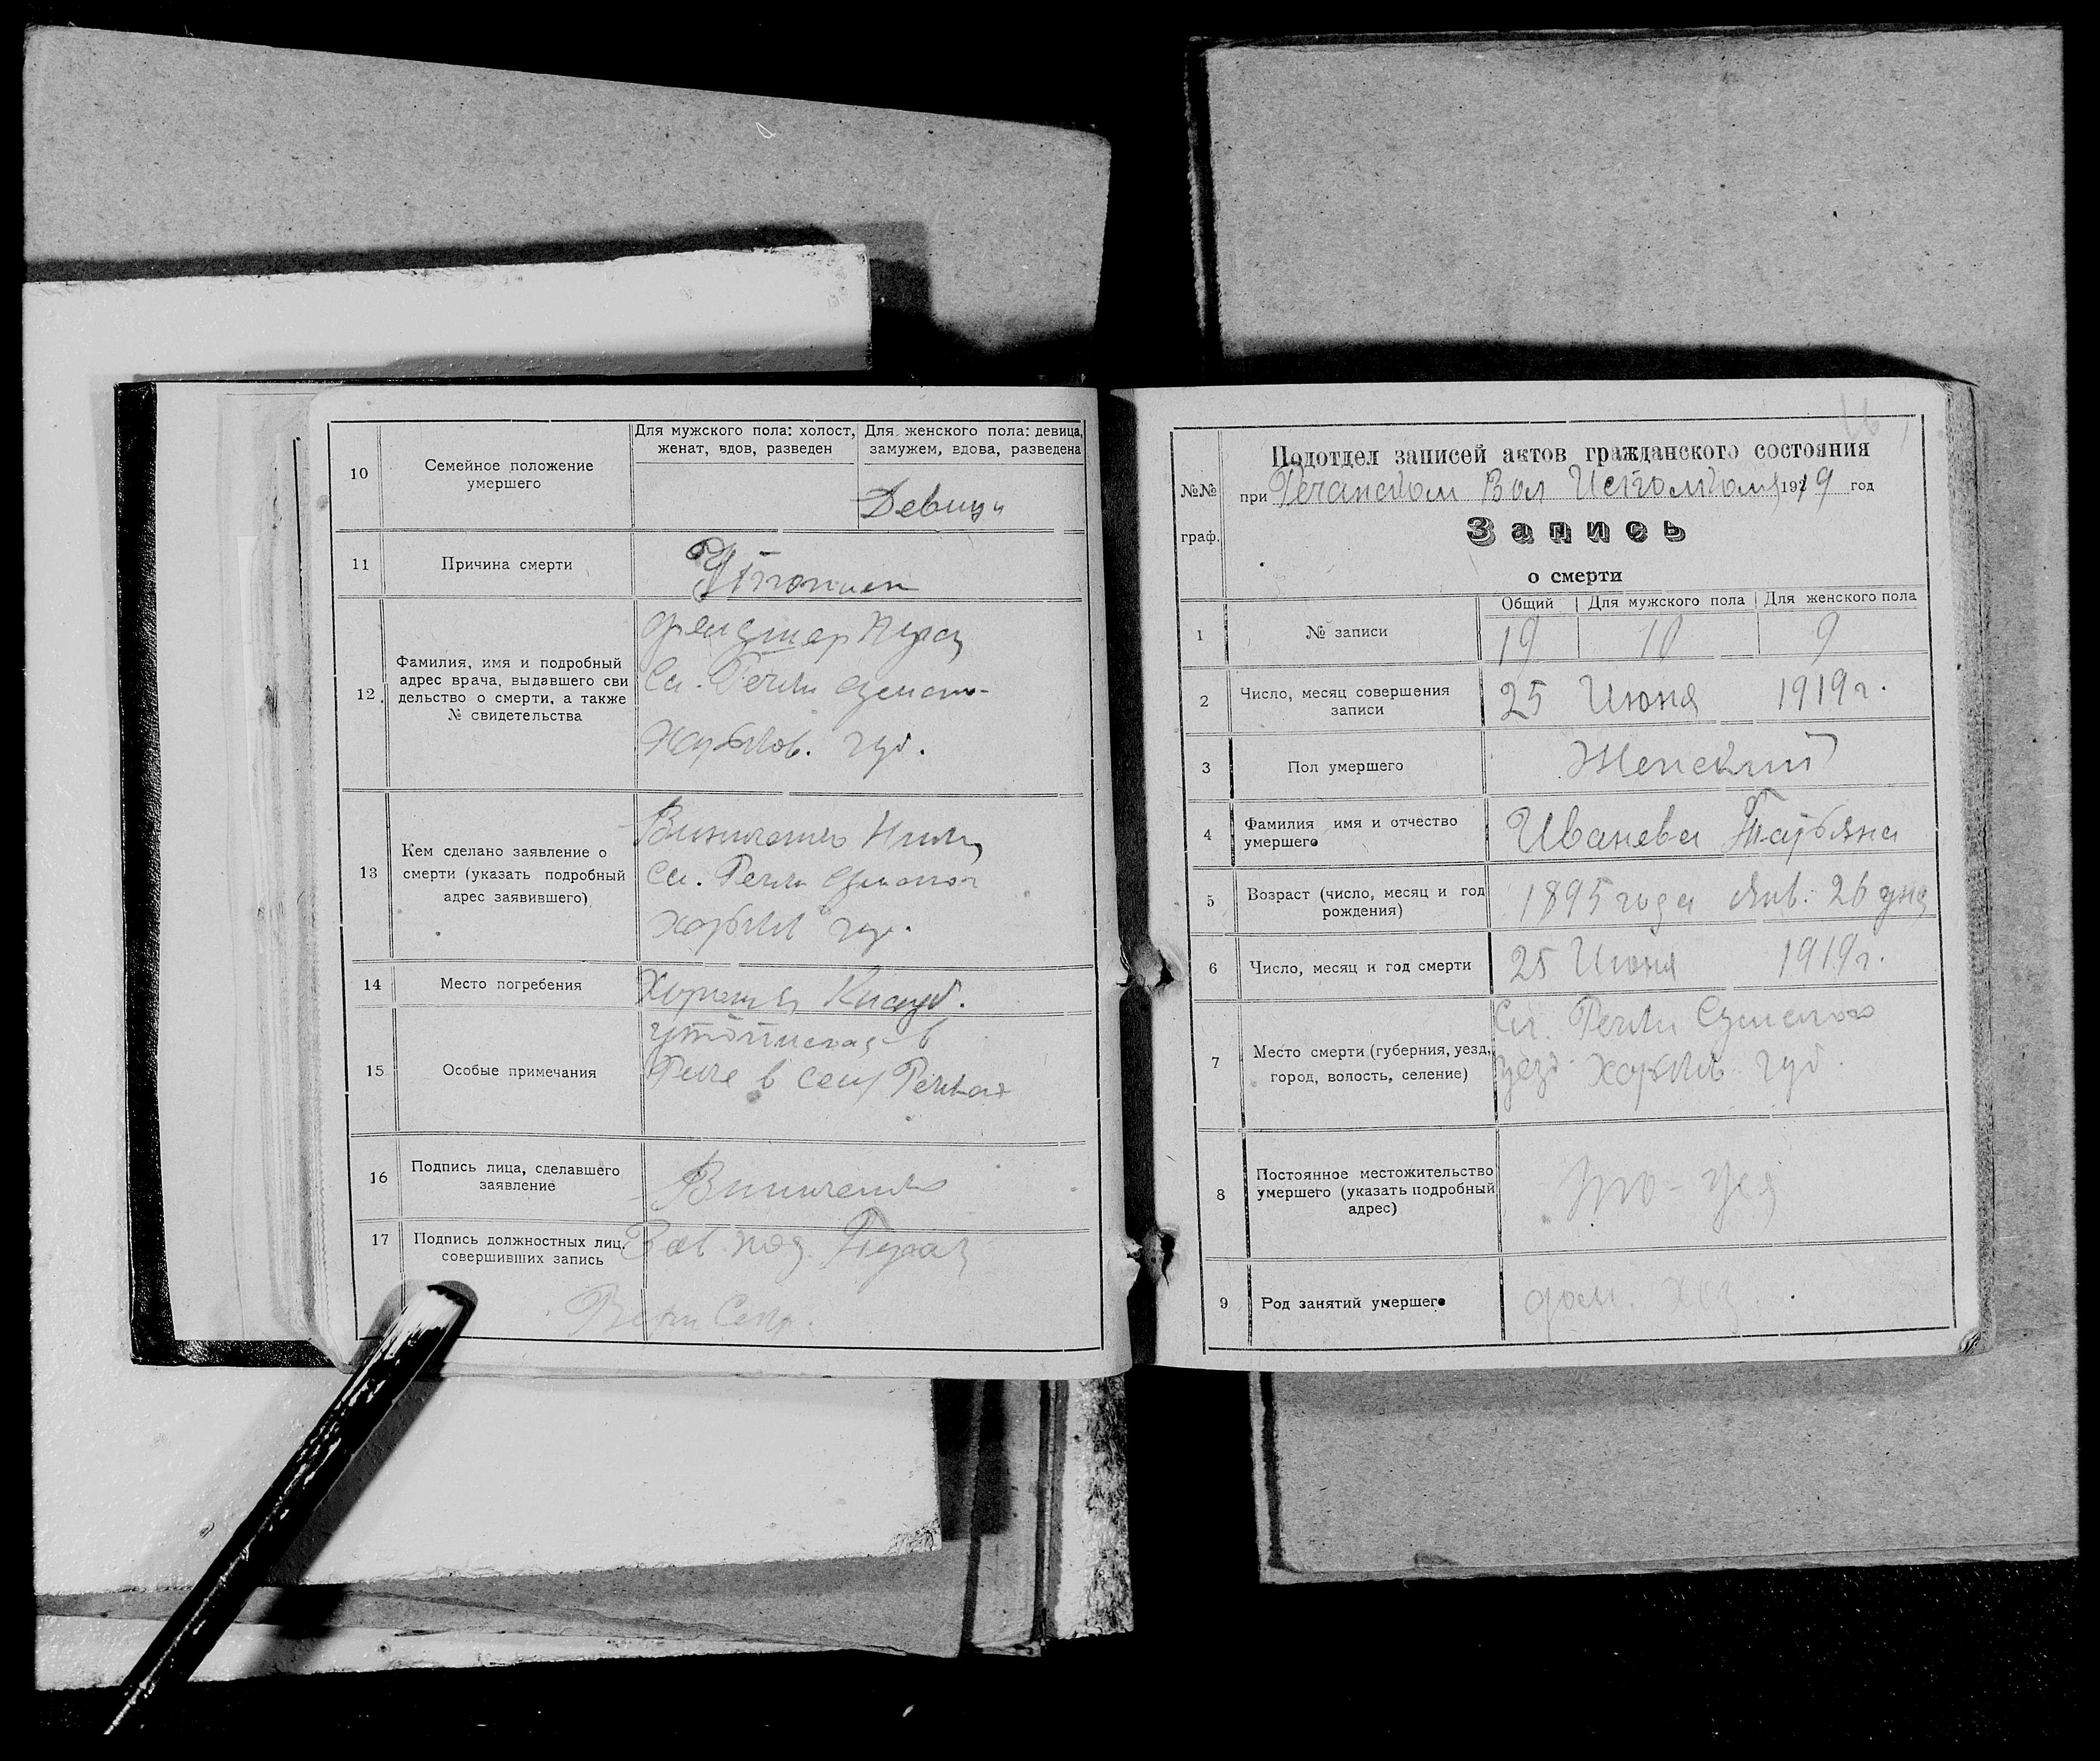 10
Семейное положение
умершего
Для мужского пола: холост,
женат, вдов, разведен
Для женского пола: девица,
замужем, вдова, разведена
Девица
11
Причина смерти
12
Фамилия, имя и подробный
адрес врача, выдавшего сви
дельство о смерти, а также
№ свидетельства
Сл. Речки
губ.
13
Кем сделано заявление о
смерти (указать подробный
адрес заявившего)
Винниченко
Сл. Речки
14
Место погребения
15
Особые примечания
в
в
16
Подпись лица, сделавшего
заявление
Винниченко
17
Подпись должностных лиц,
совершивших запись
Зав. под.
№№
граф.
Подотдел записей актов гражданского состояния
при Речанском Вол Исполкоме 1919 год
Запись
о смерти
1
№ записи
Общий
Для мужского пола
Для женского пола
19
10
9
2
Число, месяц совершения
записи
25 Июня 1919 г.
3
Пол умершего
Женский
4
Фамилия имя и отчество
умершего
Иванева Татьяна
5
Возраст (число, месяц и год
рождения)
1895 года Янв. 26 дня
6
Число, месяц и год смерти
25 Июня 1919 г.
7
Место смерти (губерния, уезд,
город, волость, селение)
Сл. Речки Сумского
уезд. губ.
8
Постоянное местожительство
умершего (указать подробный
адрес)
9
Род занятий умершего
дом. хоз.